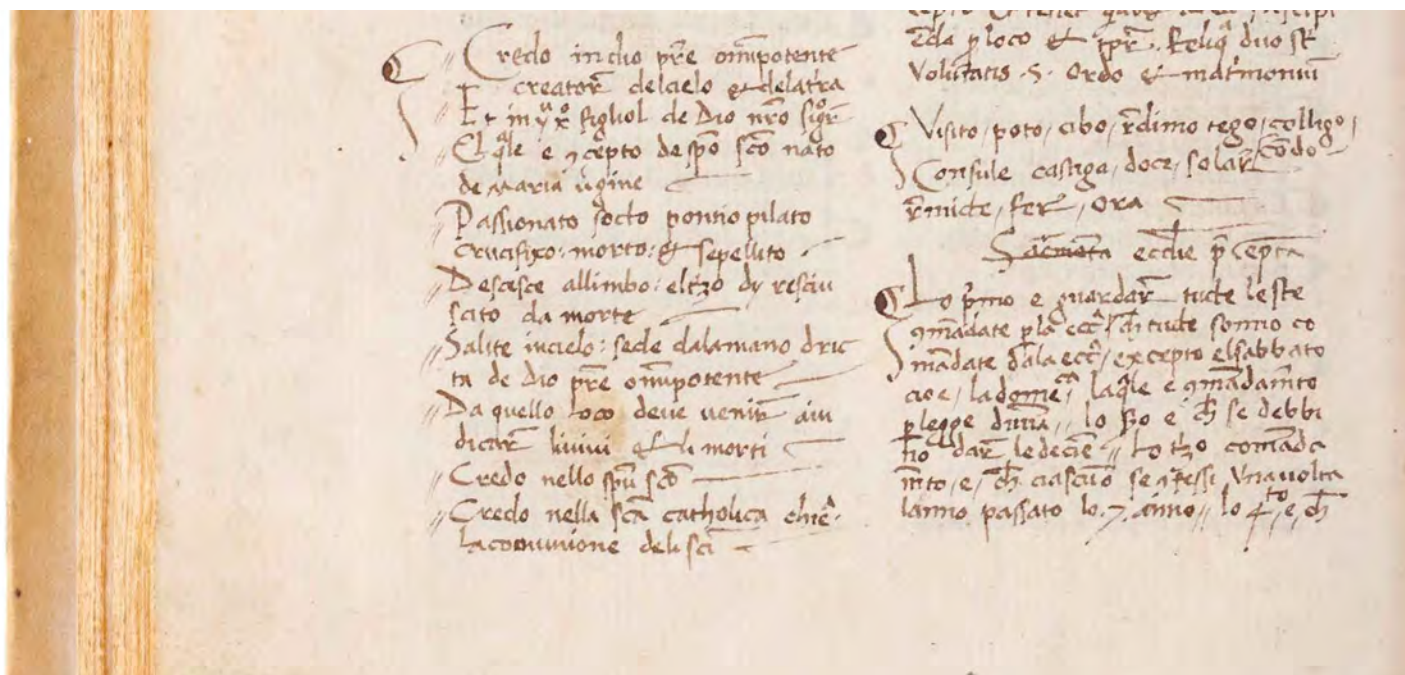 Credo indio pr̄e om̄ipotente
creator̄ delcielo & delat̄ra
Et in yħ̄ x̄ figliol de Dio nr̄o sigr̄
El q̄le e ꝯcepto de sp̄o sc̄o nato
de Maria v̄gine
Passionato socto pontio pilato
crucifixo: morto: & sepellito
Descisce allimbo: elt̄zo dy resciu
scito da morte
Salite incielo: sede dalamano dric
ta de Dio pr̄e om̄ipotente
Da quello loco deve uenir̄ aiu
dicar̄ liuiui & li morti
Credo nello sp̄u sc̄o
Credo nella sc̄a catholica chiē
lacomunione deli sc̄i
ꝑ loco & duo st̄
Volūtatis .5. Ordo & mat̄moniū
Visito, poto, cibo, r̄dimo tego, colligo,
cōdo
Consule castiga, doce, solar̄
r̄micte, fer̄, ora
Sacram̄ta eccl̄ie p̄cepta
Lo p̄mo e guardar̄ tucte le feste
ꝯmādate ꝑ la ecc̄ ch̄ tucte sonno co
mādate dala ecc̄, excepto elsabbato
cioe, la dome᷒ca, laq̄le e ꝯmādam̄to
ꝑ legge diuīa,, lo 2o e ch̄ se debbi
no dar̄ le decie,, Lo t̄zo comāda
m̄to, e, ch̄ ciascūo se ꝯfessi Vna uolta
lanno passato lo .7. anno,, lo 4to, e, ch̄